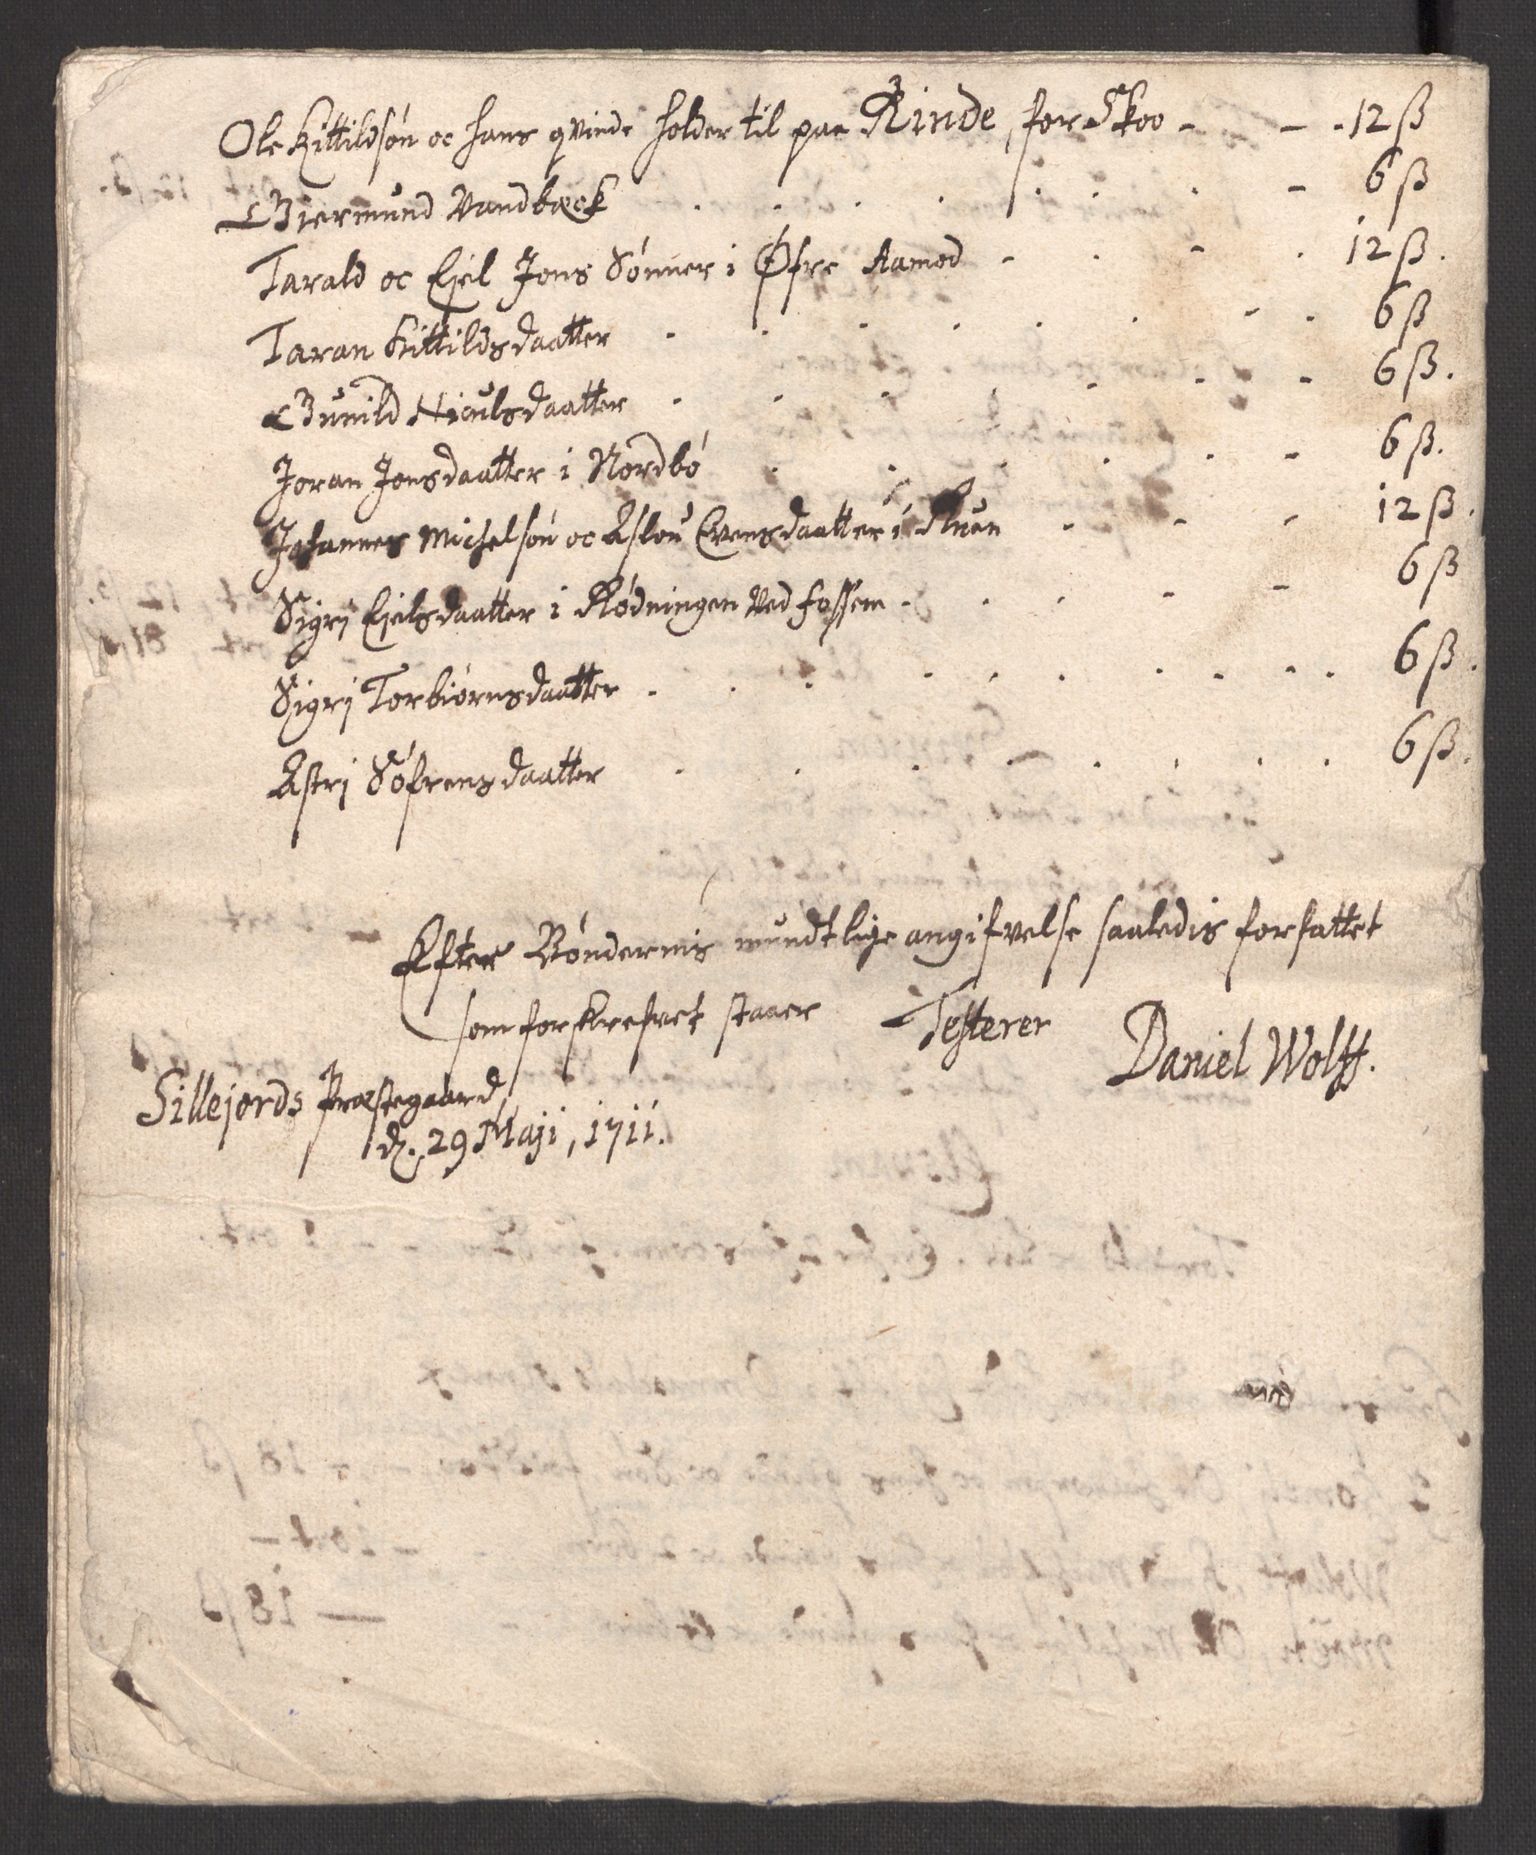 Ole Kittildsøn oc hans qvinde holder til paa Rinde, for Skoo - - - 12 ß
Giermund Vandbæck - 6 ß
Tarald oc Ejel Jons Sønner i Øfre Aamod - - 12 ß.
Taran Kittildsdaatter - - 6 ß
Gunild Niculsdaatter - 6 ß.
Joran Jonsdaatter i Nordbø - 6 ß.
Johannes Michelsøn oc Aslou Evensdaatter i - - - 12 ß.
Sigrj Ejelsdaatter i Rødningen ved fossem - - - 6 ß
Sigrj Torbiørnsdaatter - - - 6 ß.
Astrj Søfrensdaatter - 6 ß.
Efter Bøndernis mundtlige angifvelse saaledis forfattet
som forskrefvet staaer Testerer Daniel Wolff.
Sillejords Præstegaard
d. 29 Maji, 1711.